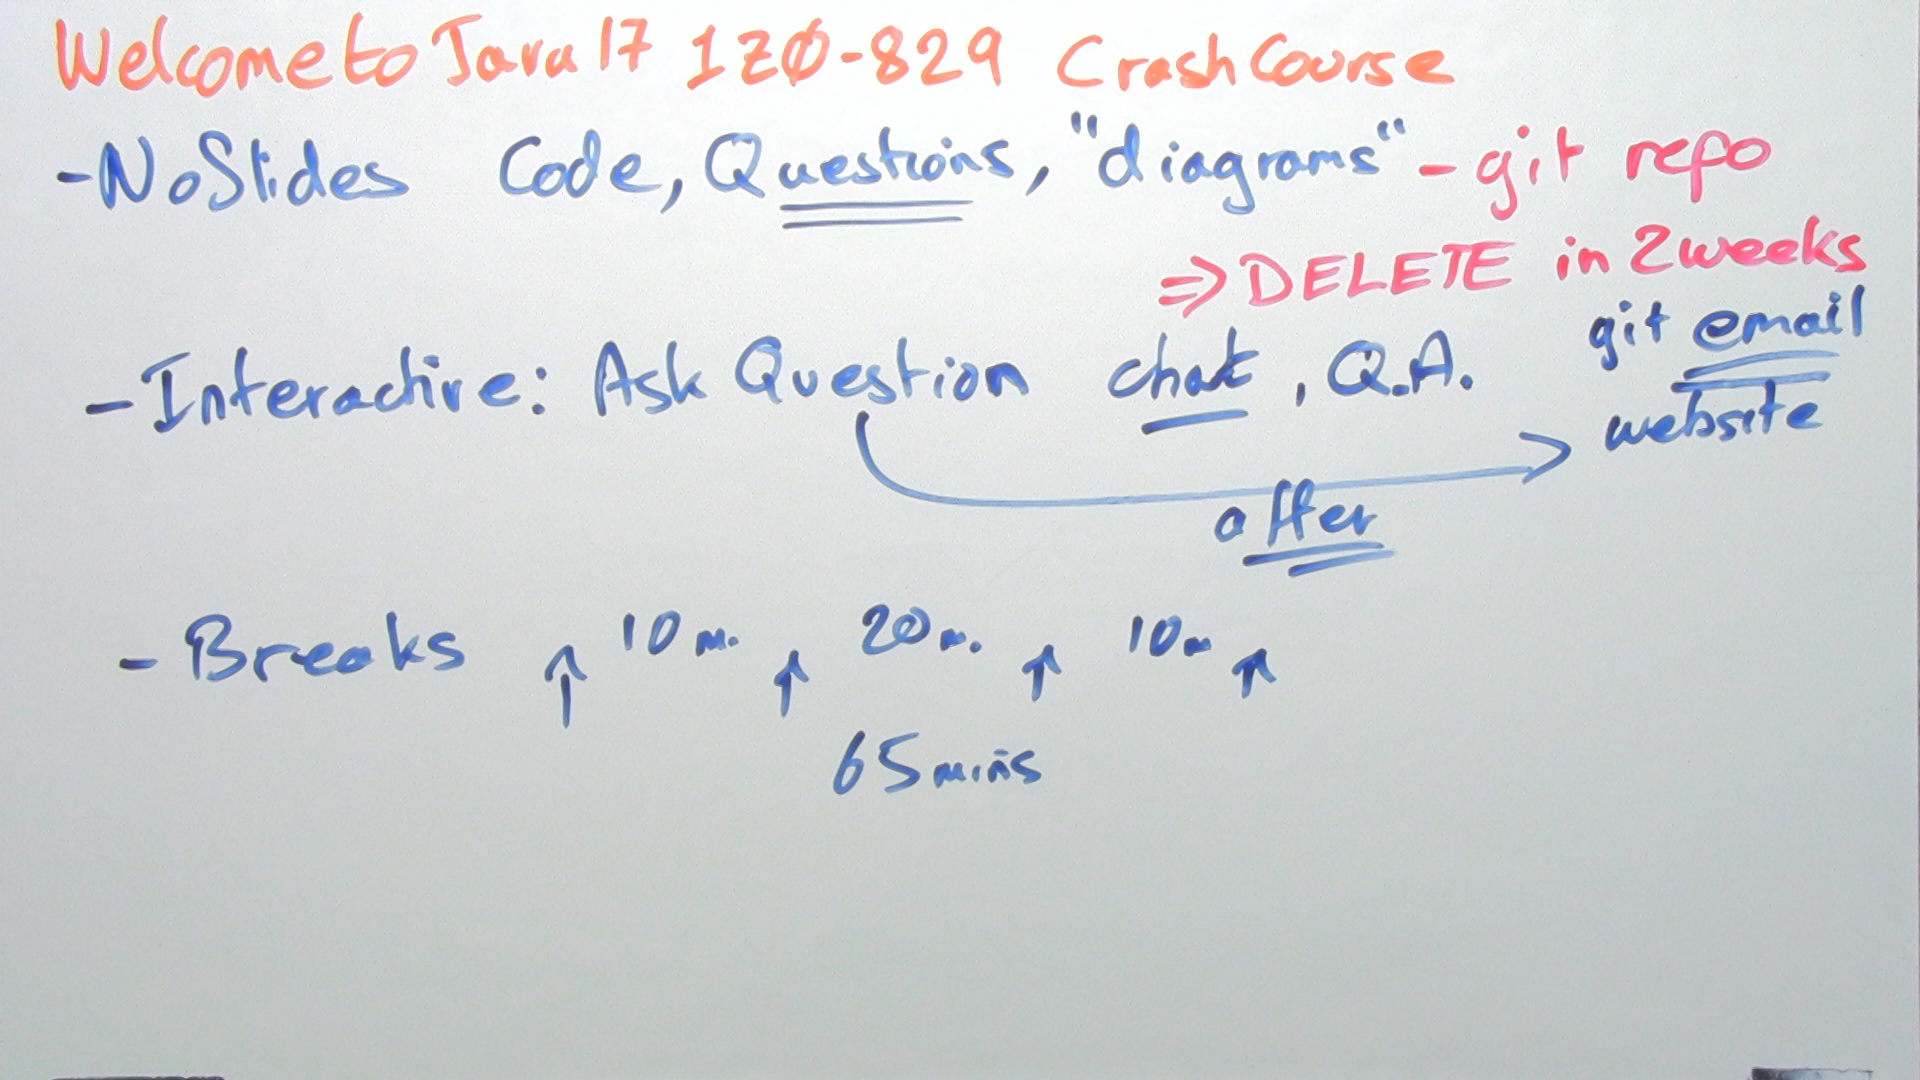 Welcome to Java 17 1Z0-829 Crash Course
- No Slides Code, Questions, "diagrams" - git repo
⇒ DELETE in 2 weeks
git email
- Interactive: Ask Question chat, Q.A.
website
offer
- Breaks ↑ 10 m. ↑ 20 m. ↑ 10 m ↑
65 mins